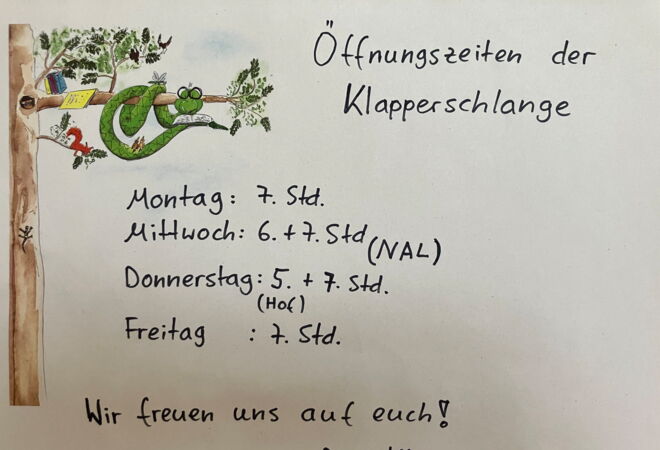 Öffnungszeiten der
Klapperschlange
Montag: 7. Std.
Mittwoch: 6. + 7. Std (NAL)
Donnerstag: 5. + 7. Std.
(Hof)
Freitag : 7. Std.
Wir freuen uns auf euch!